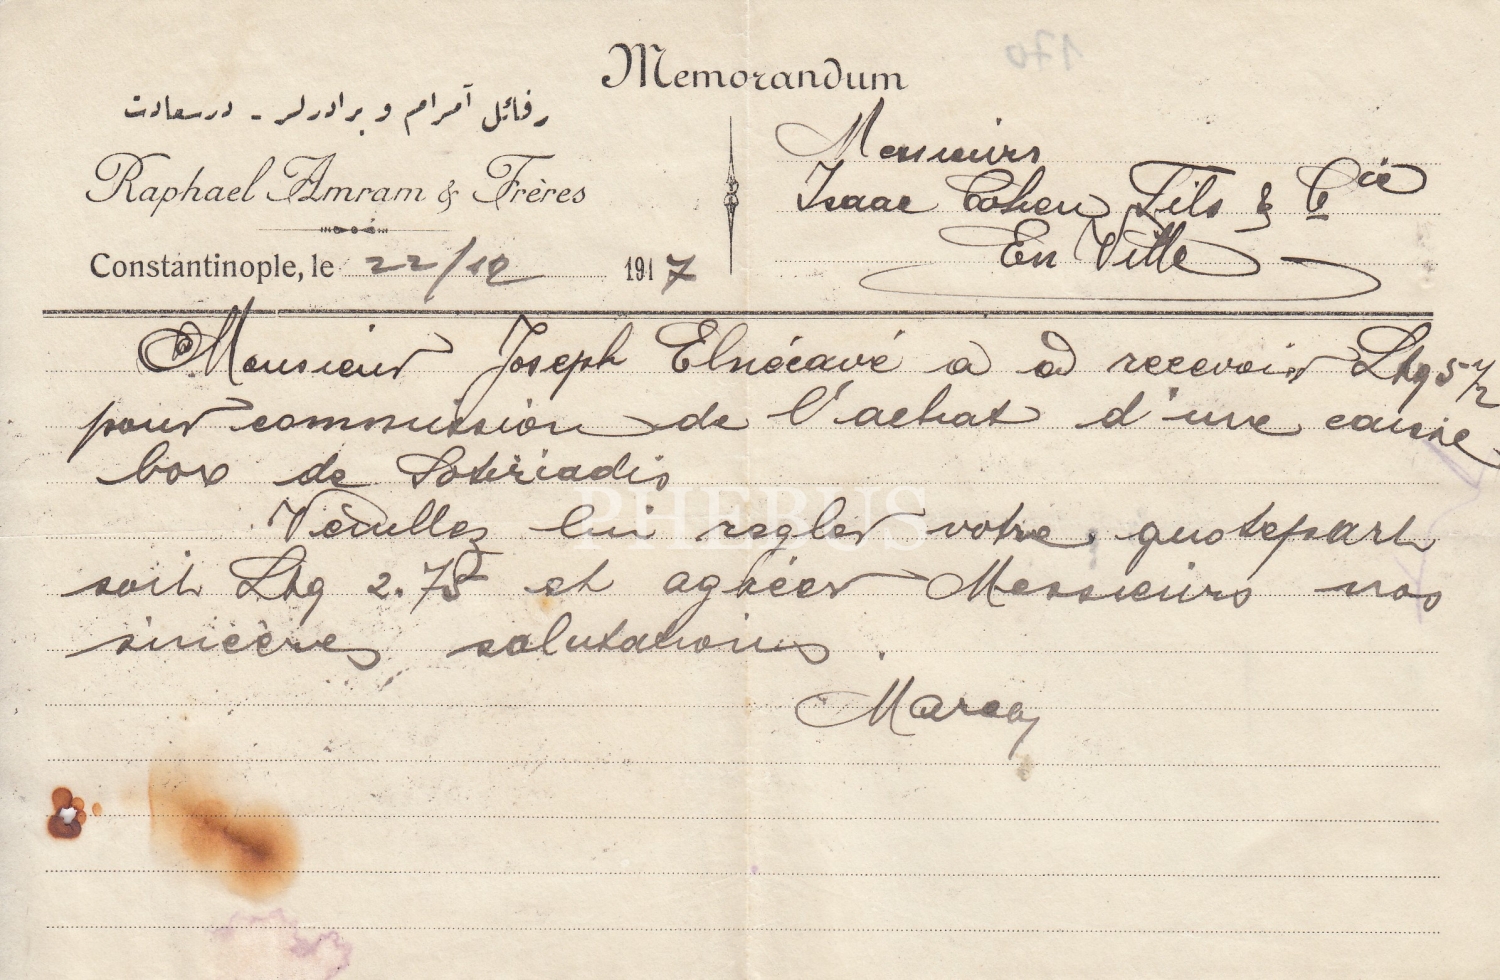 Memorandum
170
رفائل آمرام و برادرلر - درسعادت
Raphael Amram & Frères
Constantinople, le 22/10 1917
Messieurs
Isaac Cohen Fils & Cie
En Ville
Monsieur Joseph Elnécavé a à recevoir Ltq 5 1/2
pour commission de l'achat d'une caisse
box de Sotiriadis
Veuillez lui regler votre quotepart
soit Ltq 2.75 et agréer Messieurs nos
sincères salutations.
PHEBUS